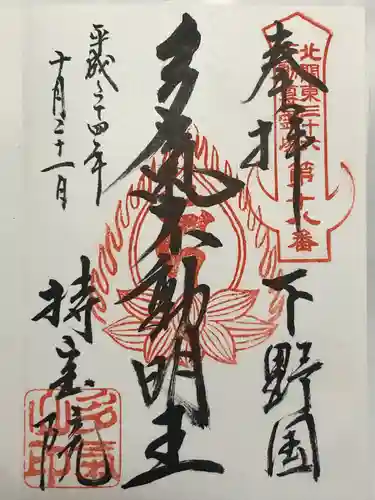 奉拝
北関東三十六
不動尊霊場
第十八番
下野国
多氣不動明王
平成二十四年
十月二十一日
持宝院